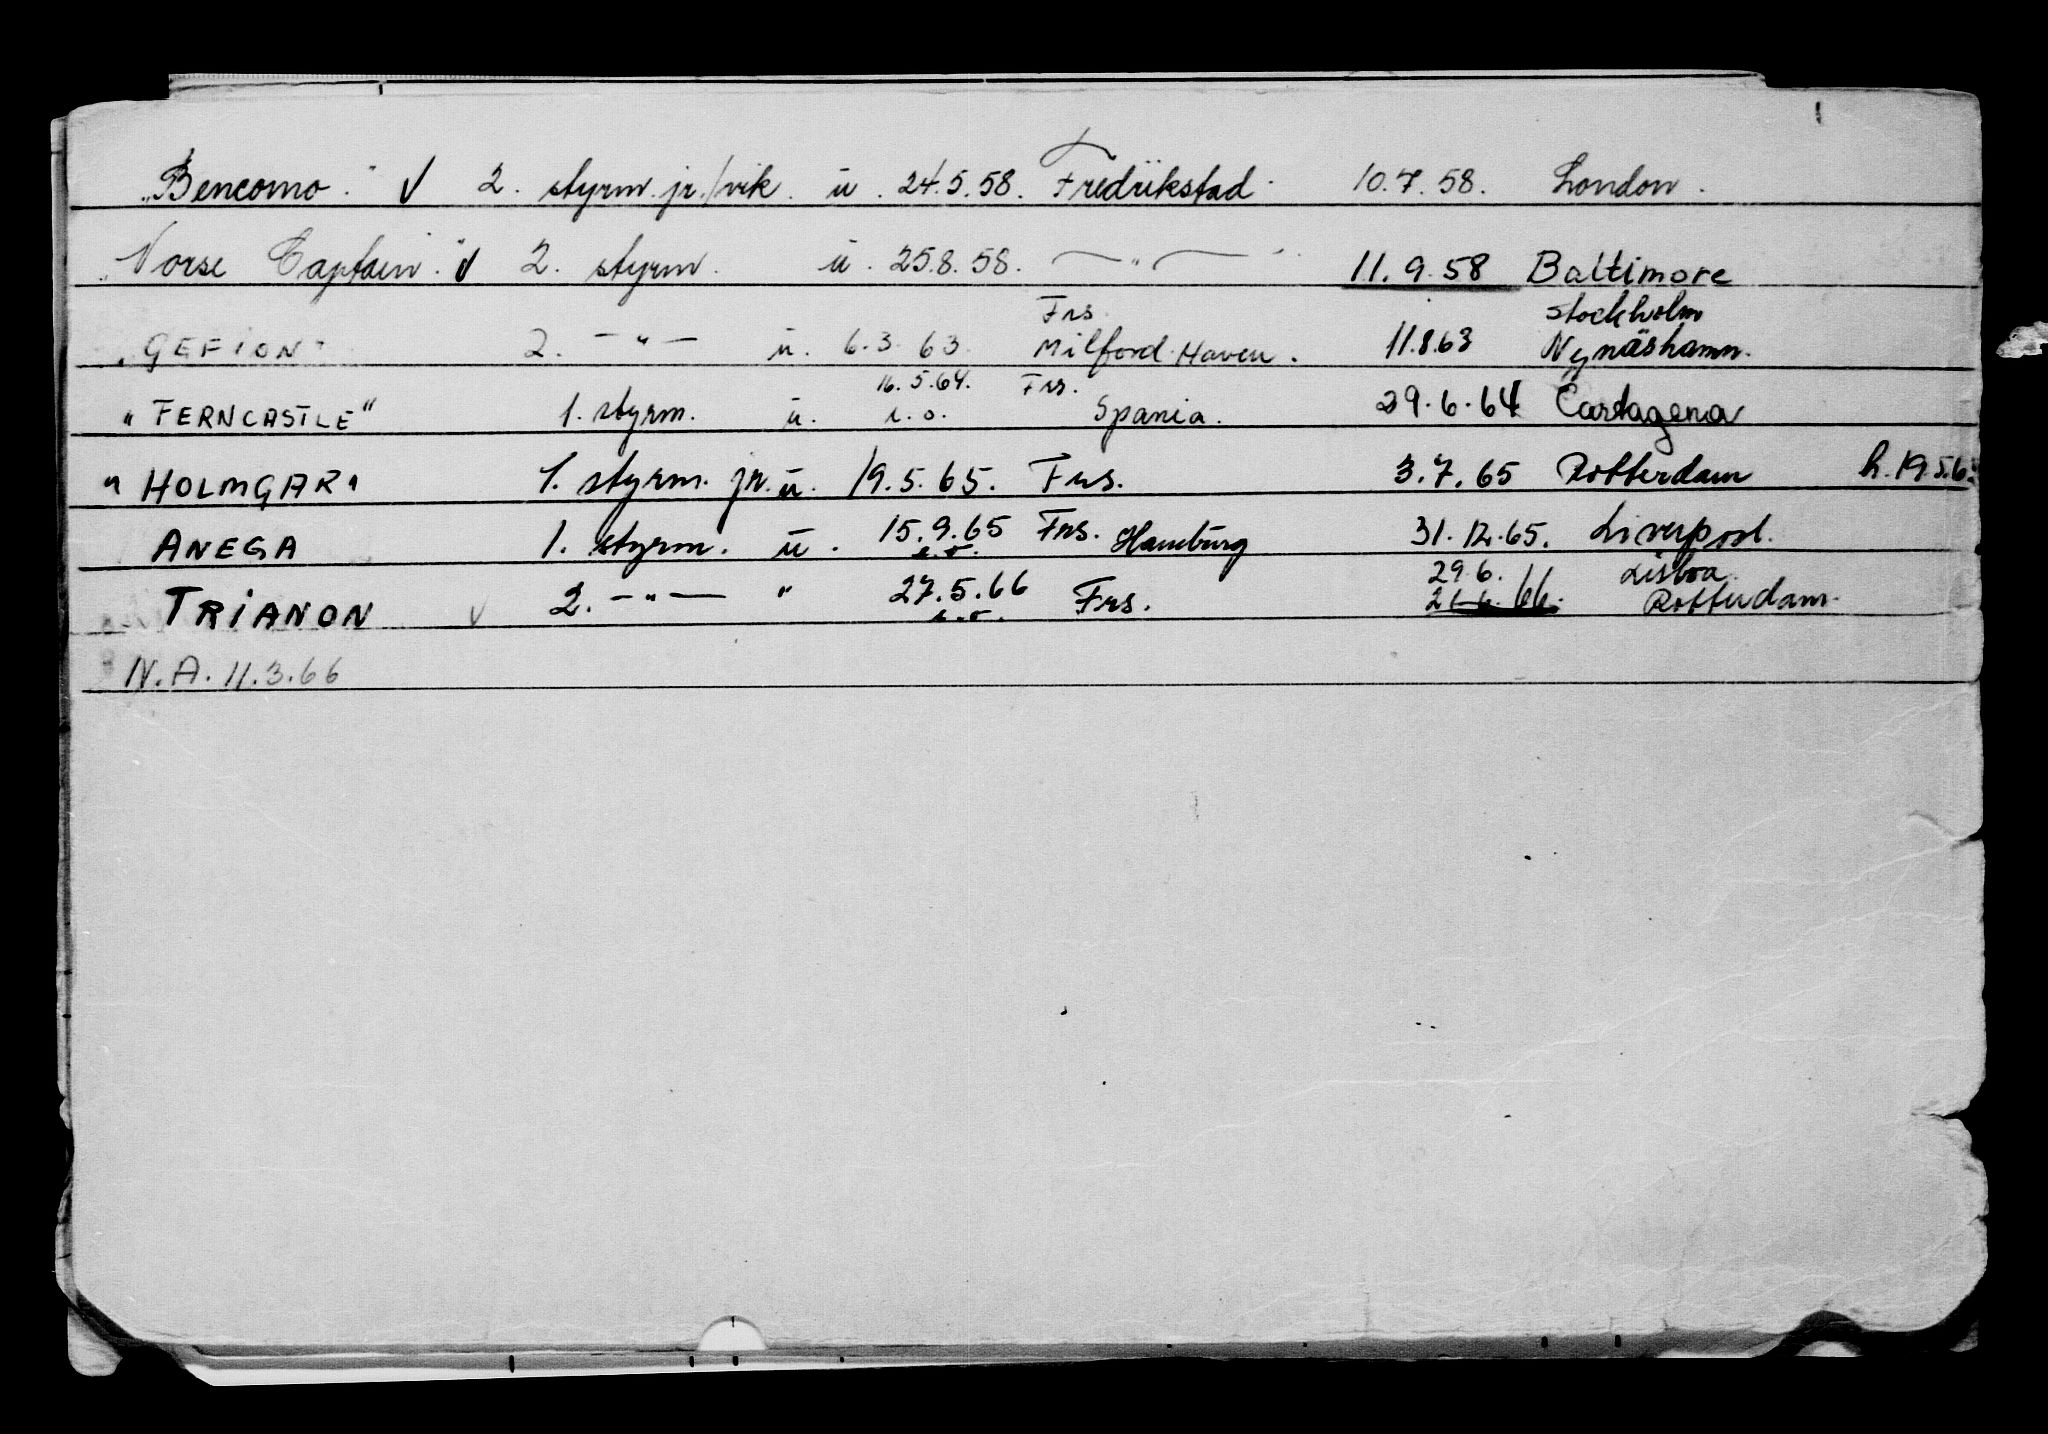 „Bencomo." V 2. styrm. jr./vik. u. 24.5.58. Fredrikstad. 10.7.58. London.
„Norse Captain." V 2. styrm. u. 25.8.58. — " — 11.9.58 Baltimore
Frs. Stockholm
„GEFION" 2. — " — u. 6.3.63. Milford Haven. 11.8.63 Nynäshamn.
16.5.64. Frs.
"FERNCASTLE" 1. styrm. u. i.o. Spania. 29.6.64 Cartagena
"HOLMGAR" 1. styrm. jr. u. 19.5.65. Frs. 3.7.65 Rotterdam h. 19.5.6
ANEGA 1. styrm. u. 15.9.65 Frs. Hamburg 31.12.65. Liverpool.
i.o.
29.6. Lisboa
TRIANON V 2. — " — " 27.5.66 Frs. 21.6.66. Rotterdam.
i.o.
N.A. 11.3.66